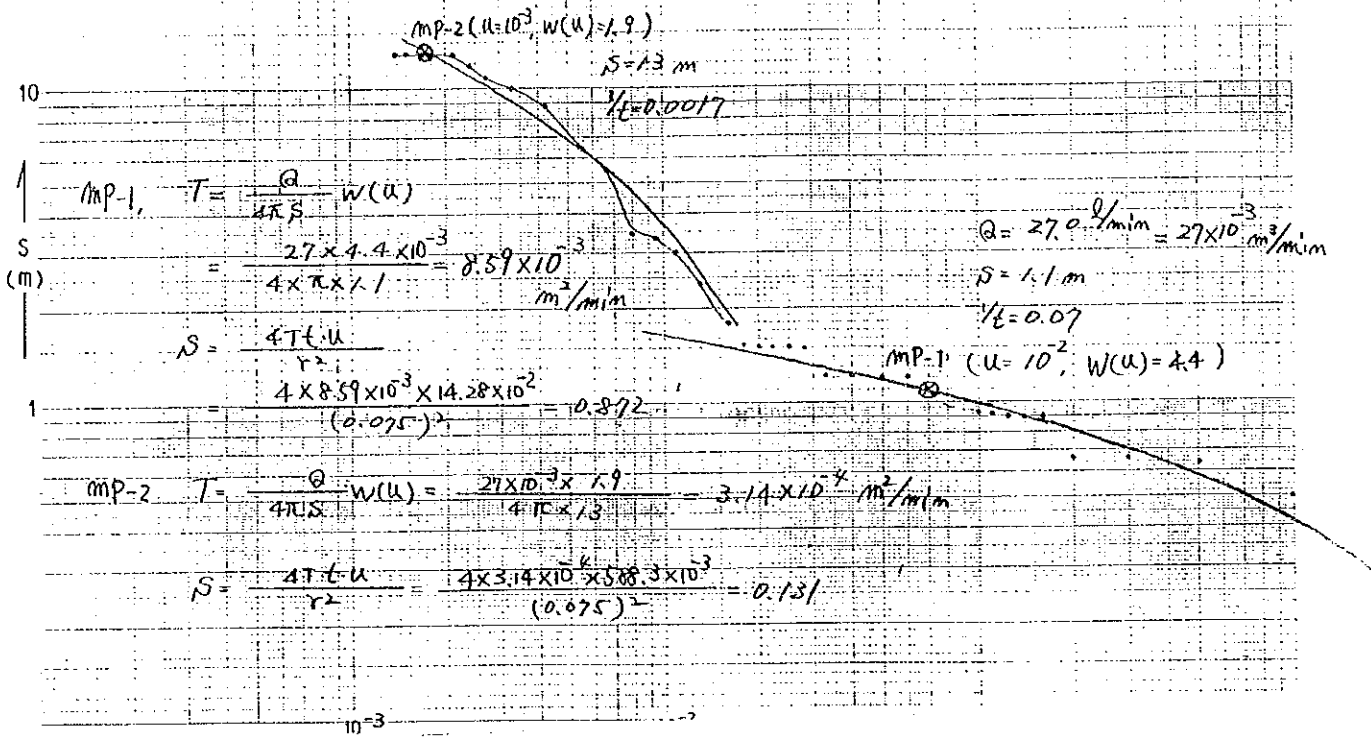 MP-2 (U=10⁻³, W(U)=1.9)
S=13 m
1/t=0.0017
10
S
(m)
1
MP-1, T = Q/4πS W(U)
= 27×4.4×10⁻³ / 4×π×1.1 = 8.59×10⁻³
m²/min
S = 4Tt·U / r²
= 4×8.59×10⁻³×14.28×10⁻² / (0.075)² = 0.872
Q = 27.0 l/min = 27×10⁻³ m³/min
S = 1.1 m
1/t = 0.07
MP-1 (U=10⁻², W(U)=4.4)
MP-2 T = Q/4πS W(U) = 27×10⁻³×1.9 / 4π×13 = 3.14×10⁻⁴ m²/min
S = 4Tt·U / r² = 4×3.14×10⁻⁴×588.3×10⁻³ / (0.075)² = 0.131
10⁻³